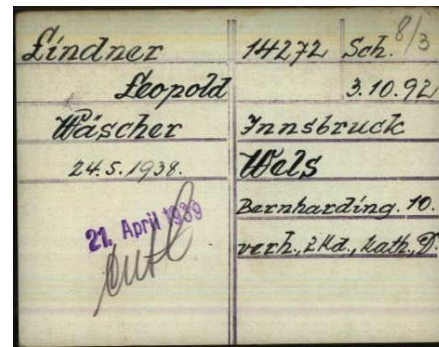 8/3
Lindner 14272 Sch.
Leopold 3.10.92
Wäscher Innsbruck
24.5.1938. Wels
Bernharding. 10.
21. April 1939
verh., 2 Kd., kath., D.
entl